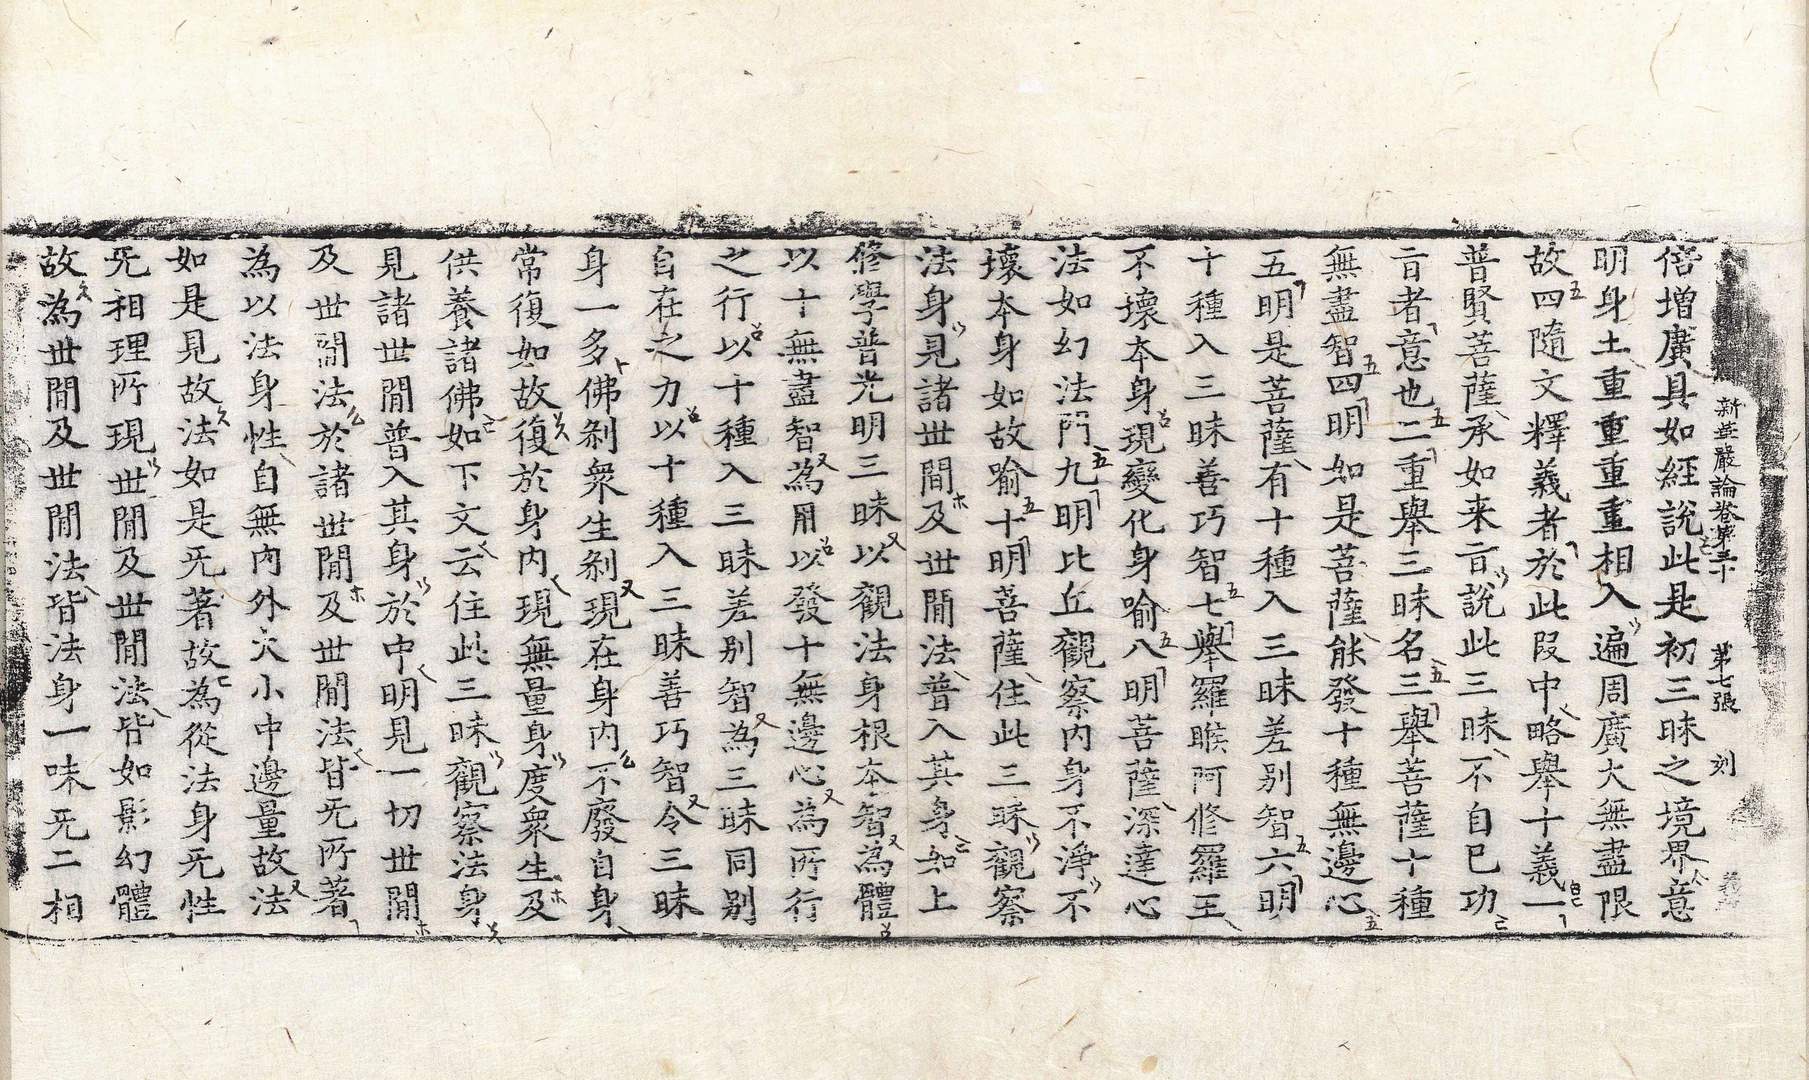 新華嚴論卷第三十　第七張　刻
倍增廣具如經說此是初三昧之境界意
明身土重重重重相入遍周廣大無盡限
故四隨文釋義者於此段中略舉十義一
普賢菩薩承如来言說此三昧不自已功
言者意也二重舉三昧名三舉菩薩十種
無盡智四明如是菩薩能發十種無邊心
五明是菩薩有十種入三昧差别智六明
十種入三昧善巧智七舉羅睺阿修羅王
不壞本身現變化身喻八明菩薩深達心
法如幻法門九明比丘觀察內身不淨不
壞本身如故喻十明菩薩住此三昧觀察
法身見諸世間及世間法普入其身如上
修學普光明三昧以觀法身根本智為體
以十無盡智為用以發十無邊心為所行
之行以十種入三昧差别智為三昧同别
自在之力以十種入三昧善巧智令三昧
身一多佛剎衆生剎現在身內不廢自身
常復如故復於身內現無量身度衆生及
供養諸佛如下文云住此三昧觀察法身
見諸世間普入其身於中明見一切世間
及世間法於諸世間及世間法皆无所著
為以法身性自無內外大小中邊量故法
如是見故法如是无著故為從法身无性
无相理所現世間及世間法皆如影幻體
故為世間及世間法皆法身一味无二相